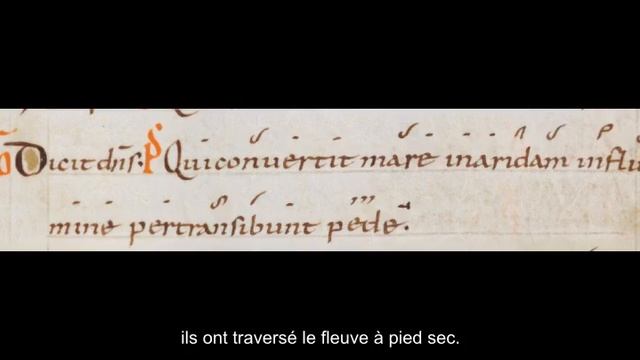 Dicit dn̄s. P Qui convertit mare inaridam influ
mine pertransibunt pede.
ils ont traversé le fleuve à pied sec.